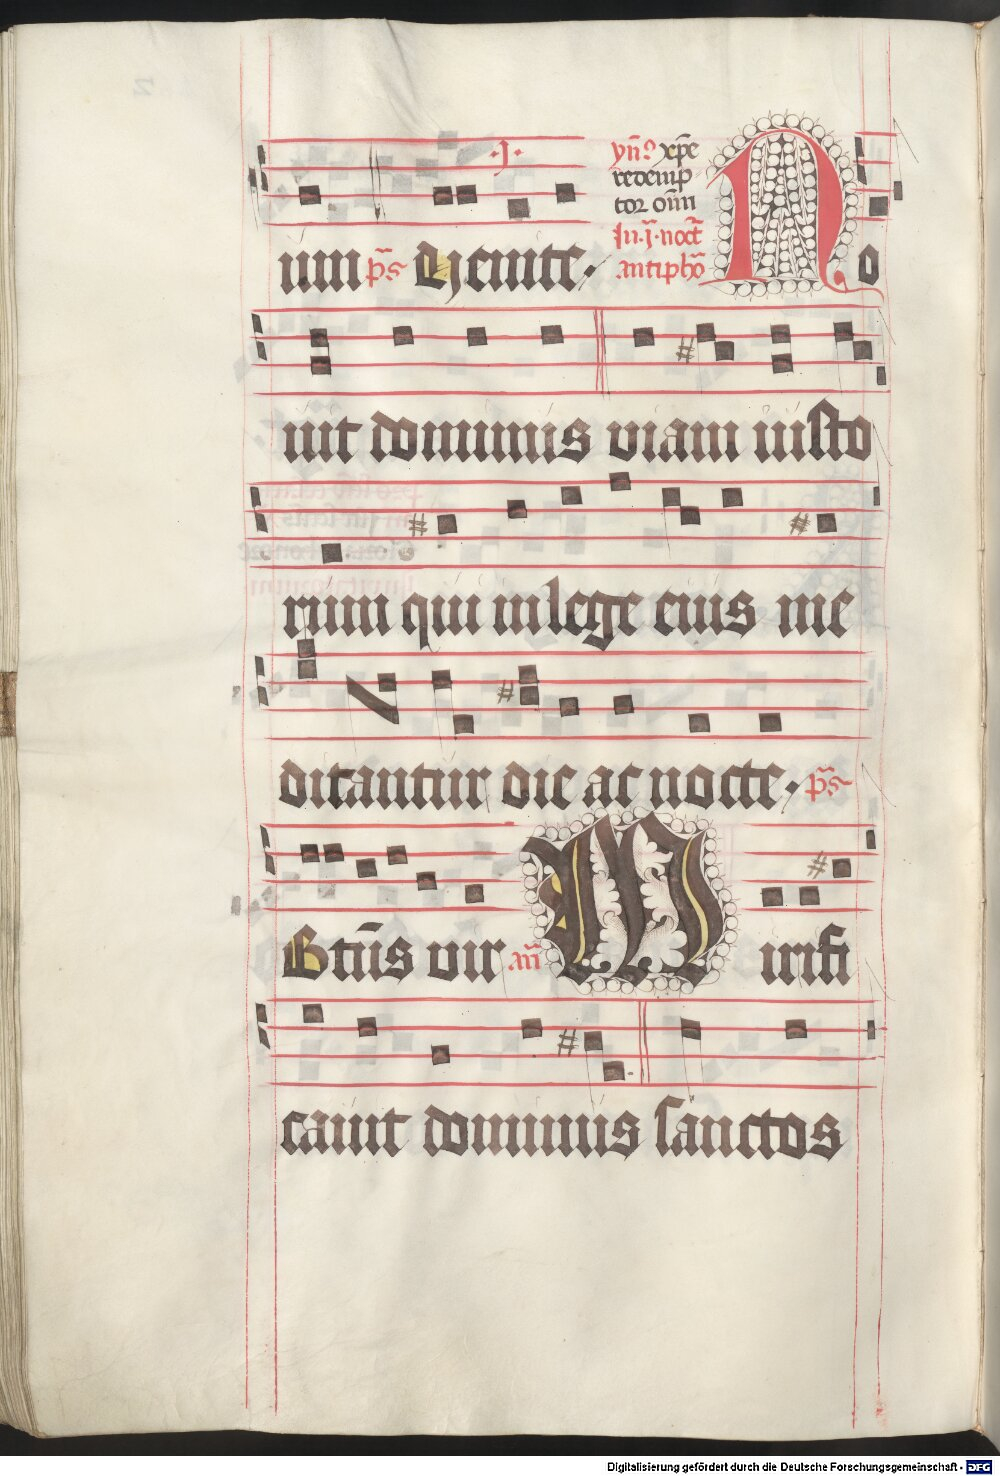 .j.
yn̄⁹ xp̄e
redemp
tor om̄i
um p̄s Uenite· In.j.noct̄ antiphō No
uit dominus viam iusto
rum qui in lege eius me
ditantur die ac nocte· p̄s
Bt̄us vir an̄ Mirifi
cauit dominus sanctos
Digitalisierung gefördert durch die Deutsche Forschungsgemeinschaft - DFG